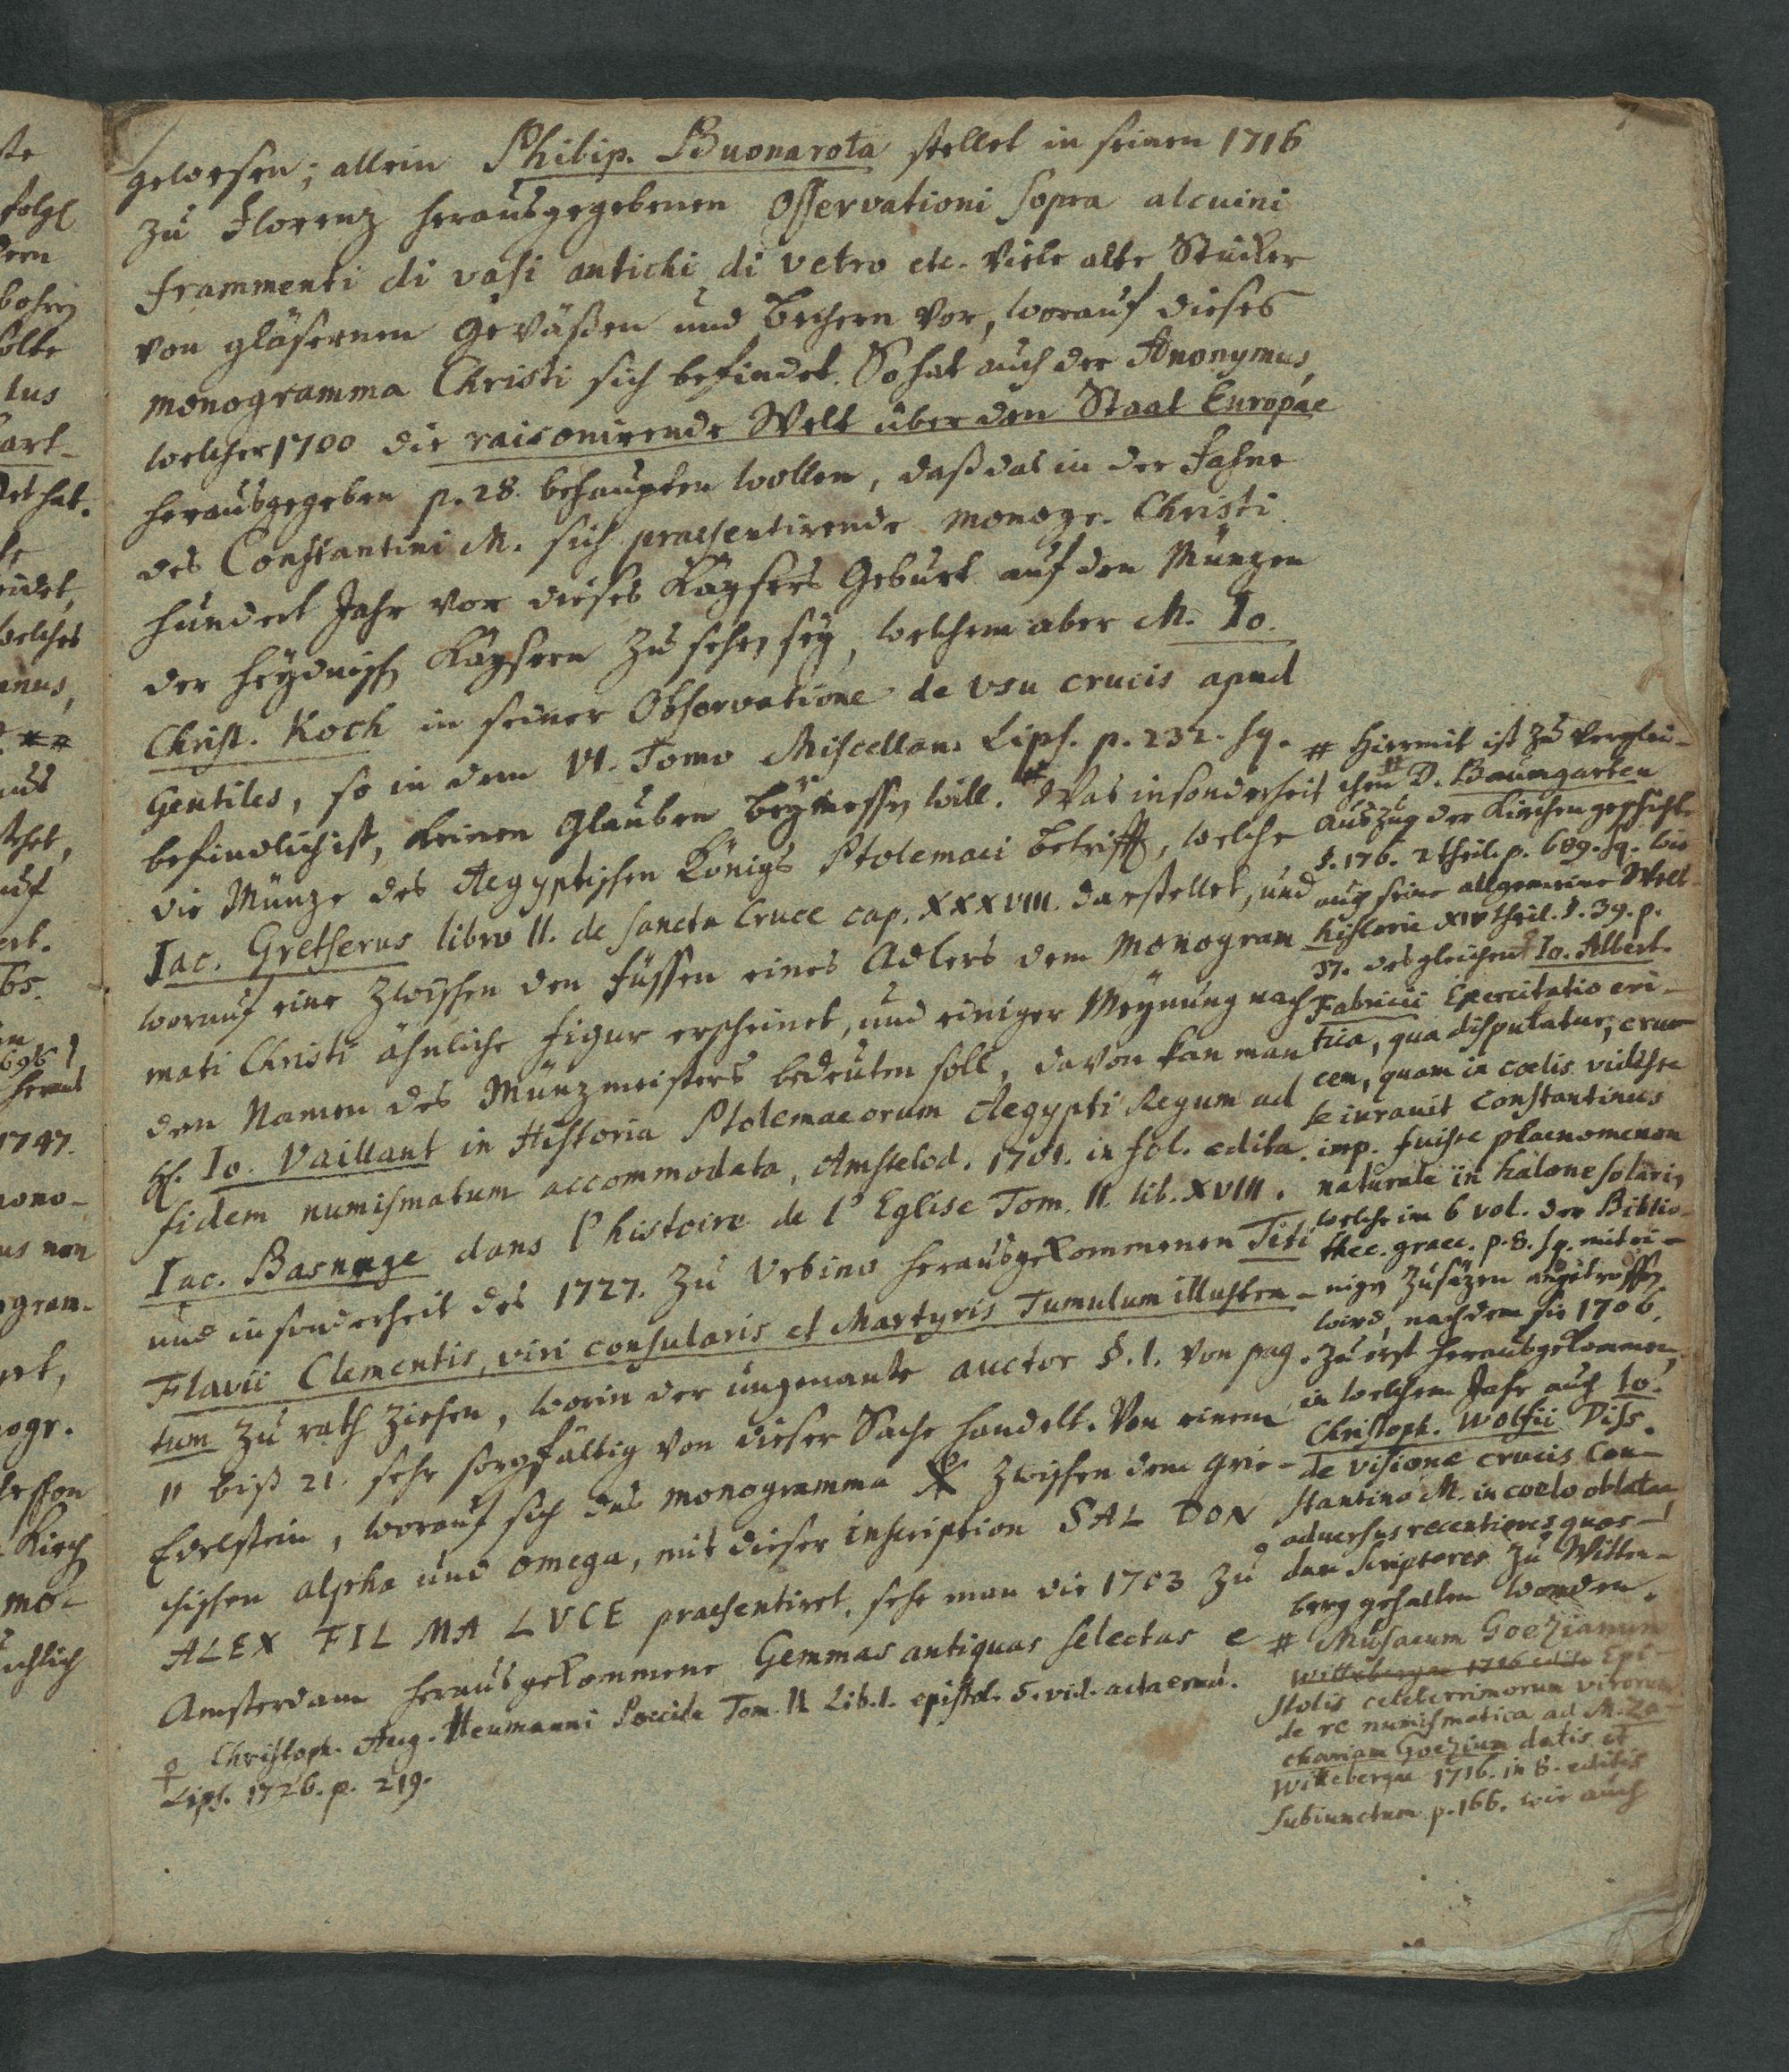 gewesen; allein Philip. Buonarota stellet in seinen 1716
zu Florenz herausgegebenen Osservationi sopra alcuini
frammenti di vasi antichi di vetro etc. viele alte Stücker
von gläsernen Geväßen und Bechern vor, worauf dieses
monogramma Christi sich befindet. So hat auch der Anonymus,
welcher 1700 die raisonirende Welt über den Staat Europae
herausgegeben p. 28. behaupten wollen, daß das in der Fahne
des Constantini M. sich praesentirende monogr. Christi
hundert Jahr vor dieses Kaysers Geburt auf den Münzen
der heydnisch Kaysern zu sehen sey, welchem aber M. Io.
Christ. Koch in seiner Observatione de vsu crucis apud
Gentiles, so in dem VI. Tomo Miscellan. Lips. p. 232. sq.
befindlich ist, keinen Glauben beymessen will. # Was insonderheit
die Münze des Aegyptischen Königs Ptolemaei betrifft, welche
Iac. Gretserus libro II. de sancta Cruce cap. XXXVIII. darstellet, und
worauf eine zwischen den füssen eines Adlers dem Monogram
mati Christi ähnliche figur erscheinet, und einiger Meynung nach
den Namen des Münzmeisters bedeuten soll, davon kan man
Io. Vaillant in Historia Ptolemaeorum Aegypti Regum ad
fidem numismatum accommodata, Amstelod. 1701. in fol. edita.
Iac. Basnage dans l'histoire de l'Eglise Tom. II. lib. XVIII.
und insonderheit des 1727. zu Urbino herausgekommenen Titi
Flavii Clementis, viri consularis et Martyris Tumulum illustra-
tum zu rath ziehen, worin der ungenante auctor §. 1. von pag.
11 biß 21. sehr sorgfältig von dieser Sache handelt. Von einem
Edelstein, worauf sich das monogramma ☧ zwischen dem grie-
chischen alpha und omega, mit dieser inscription SAL DON
ALEX FIL MA LVCE praesentiret, sehe man die 1703 zu
Amsterdam herausgekommene Gemmas antiquas selectas e
♀ Christoph. Aug. Heumanni Poecile Tom. II Lib. 1. epistol. 5. vid. acta erud.
Lips. 1726. p. 219.
# Hiermit ist zu verglei-
chen D. Baumgarten
Auszug der Kirchengeschichte
§. 176. 2 theil. p. 689. sq. wie
auch seine allgemeine Welt-
historie XIV theil. §. 39. p.
37. desgleichen Io. Albert.
Fabricii Exercitatio cri-
tica, qua disputatur, cru-
cem, quam in coelis vidisse
se iurauit Constantinus
imp. fuisse phaenomenon
naturale in halone solari,
welche im 6 vol. der Biblio-
thec. graec. p. 8. sq. mit ei-
nigen Zusäzen angetroffen
wird, nachdem sie 1706.
zu erst herausgekommen,
in welchem Jahr auch Io.
Christoph. Wolfii Diss.
de visione crucis Con-
stantino M. in coelo oblatae
adversus recentiores quos-
dam Scriptores zu Witten-
berg gehalten worden.
# Musaeum Goezianum
Wittebergae 1716 edito Epi-
stolis celeberrimorum virorum
de re numismatica ad M. Za-
chariam Goezium datis et
Wittebergae 1716. in 8. editis
subiunctum p. 166. wie auch
ste
folgl
solte
lus
art-
et hat.
eidet,
welches
inus,
aus
auf
ert.
bs.
696
1747.
mono-
us non
gram-
ogr.
Kirch
mo-
ichlich